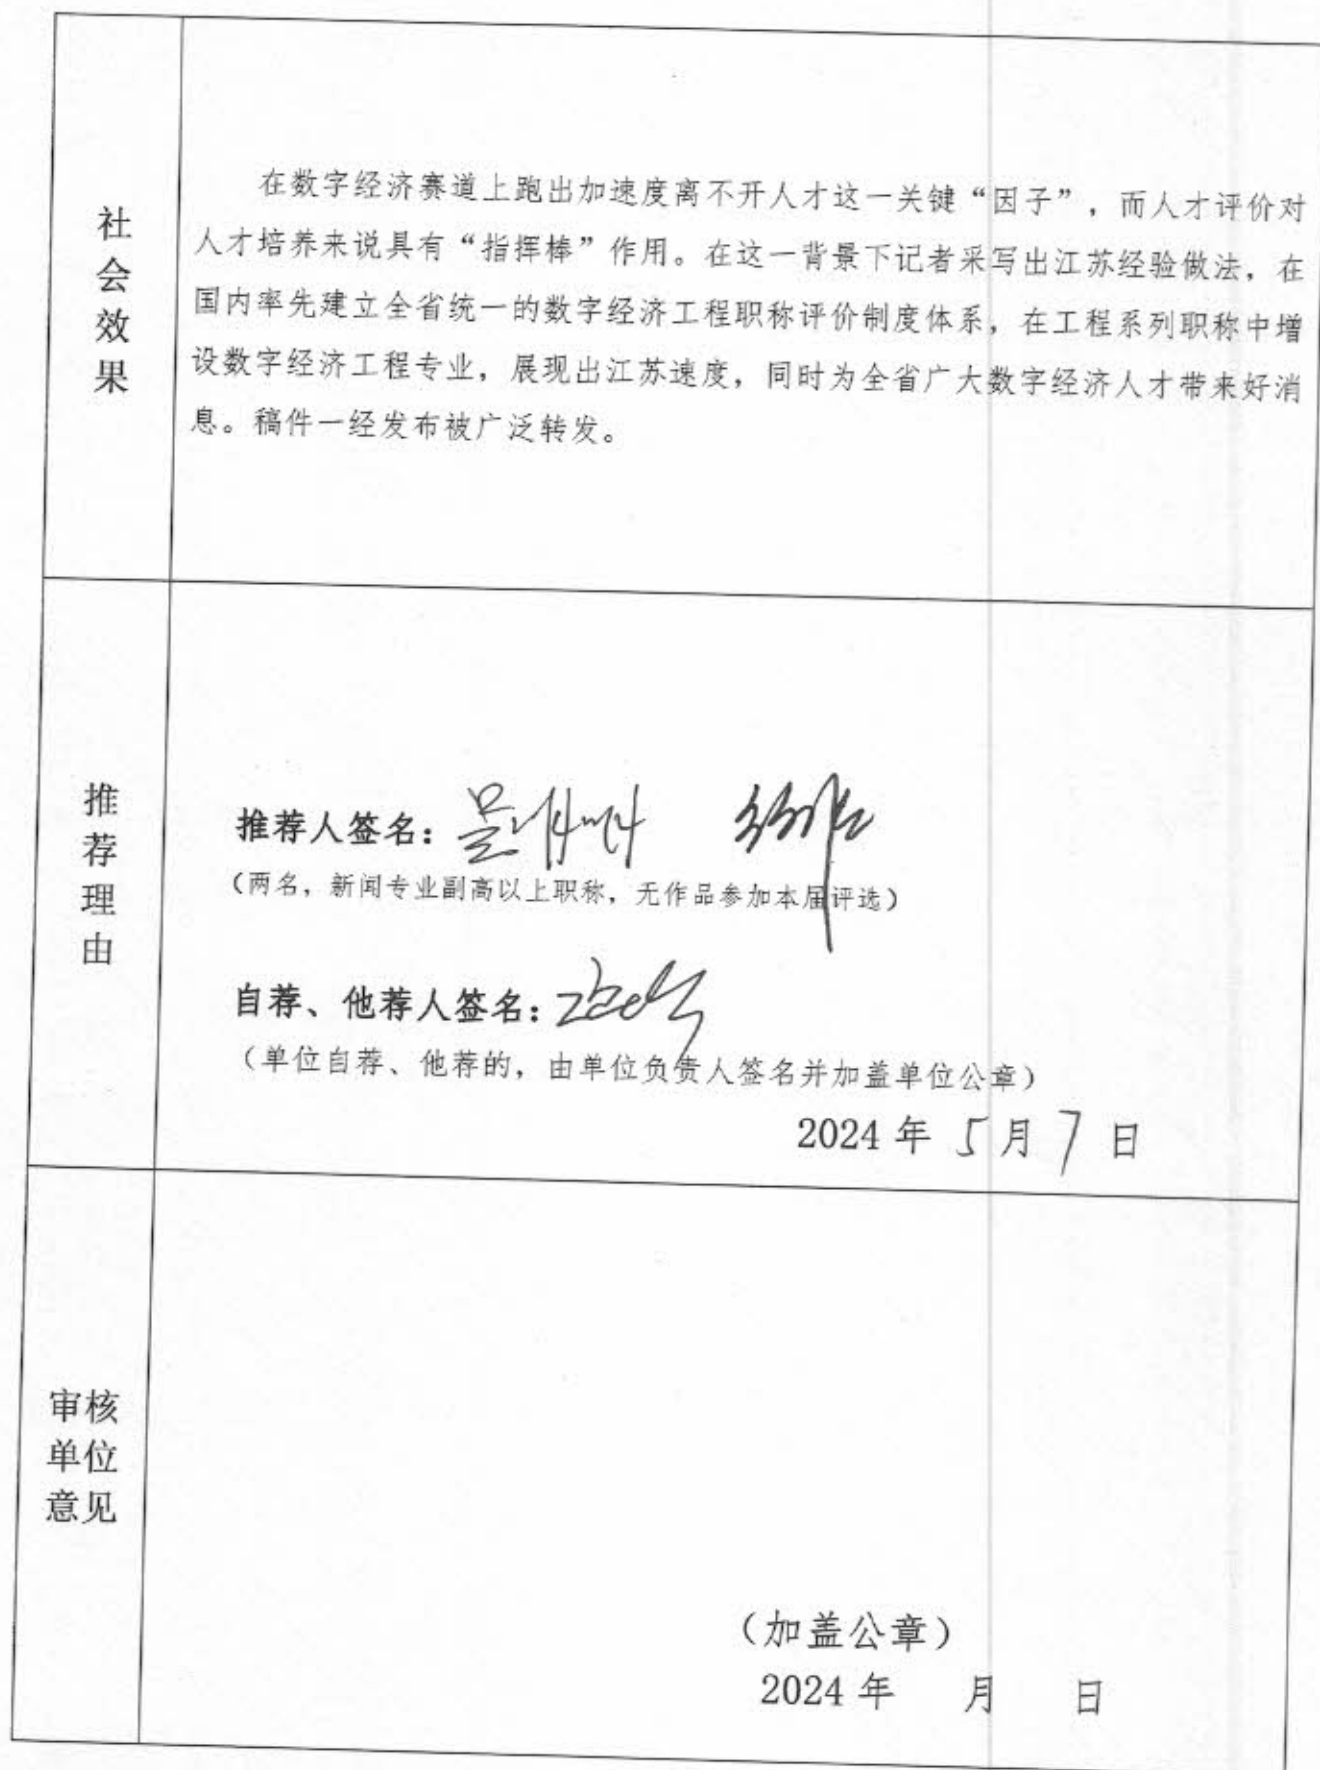 社会效果
在数字经济赛道上跑出加速度离不开人才这一关键“因子”，而人才评价对
人才培养来说具有“指挥棒”作用。在这一背景下记者采写出江苏经验做法，在
国内率先建立全省统一的数字经济工程职称评价制度体系，在工程系列职称中增
设数字经济工程专业，展现出江苏速度，同时为全省广大数字经济人才带来好消
息。稿件一经发布被广泛转发。
推荐理由
推荐人签名：
（两名，新闻专业副高以上职称，无作品参加本届评选）
自荐、他荐人签名：
（单位自荐、他荐的，由单位负责人签名并加盖单位公章）
2024年5月7日
审核
单位
意见
（加盖公章）
2024年 月 日